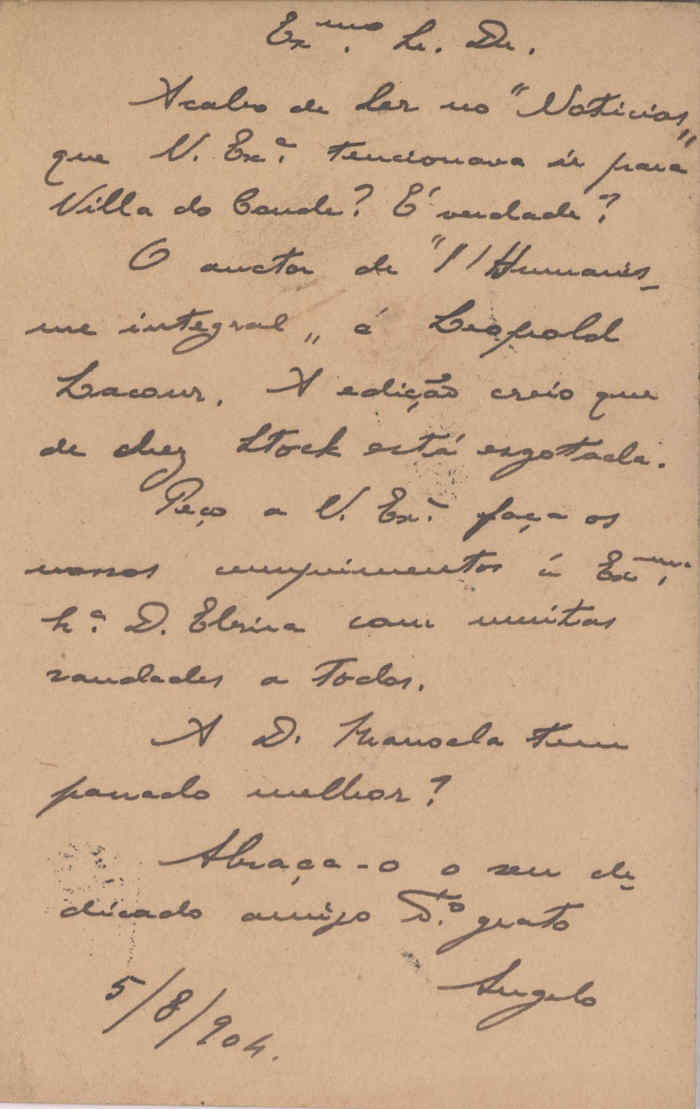 Ex.mo Sr. Dr.
Acabo de ler no "Noticias„
que V. Ex.ª tencionava ir para
Villa do Conde? É verdade?
O auctor de "l'Humanis-
me integral„ é Leopold
Lacour. A edição creio que
de chez Stock está esgotada.
Peço a V. Ex.ª faça os
nossos cumprimentos á Ex.ma
Sr.ª D. Elzira com muitas
saudades a todos.
A D. Manoela tem
passado melhor?
Abraça-o o seu de-
dicado amigo m.to grato
Angelo
5/8/904.